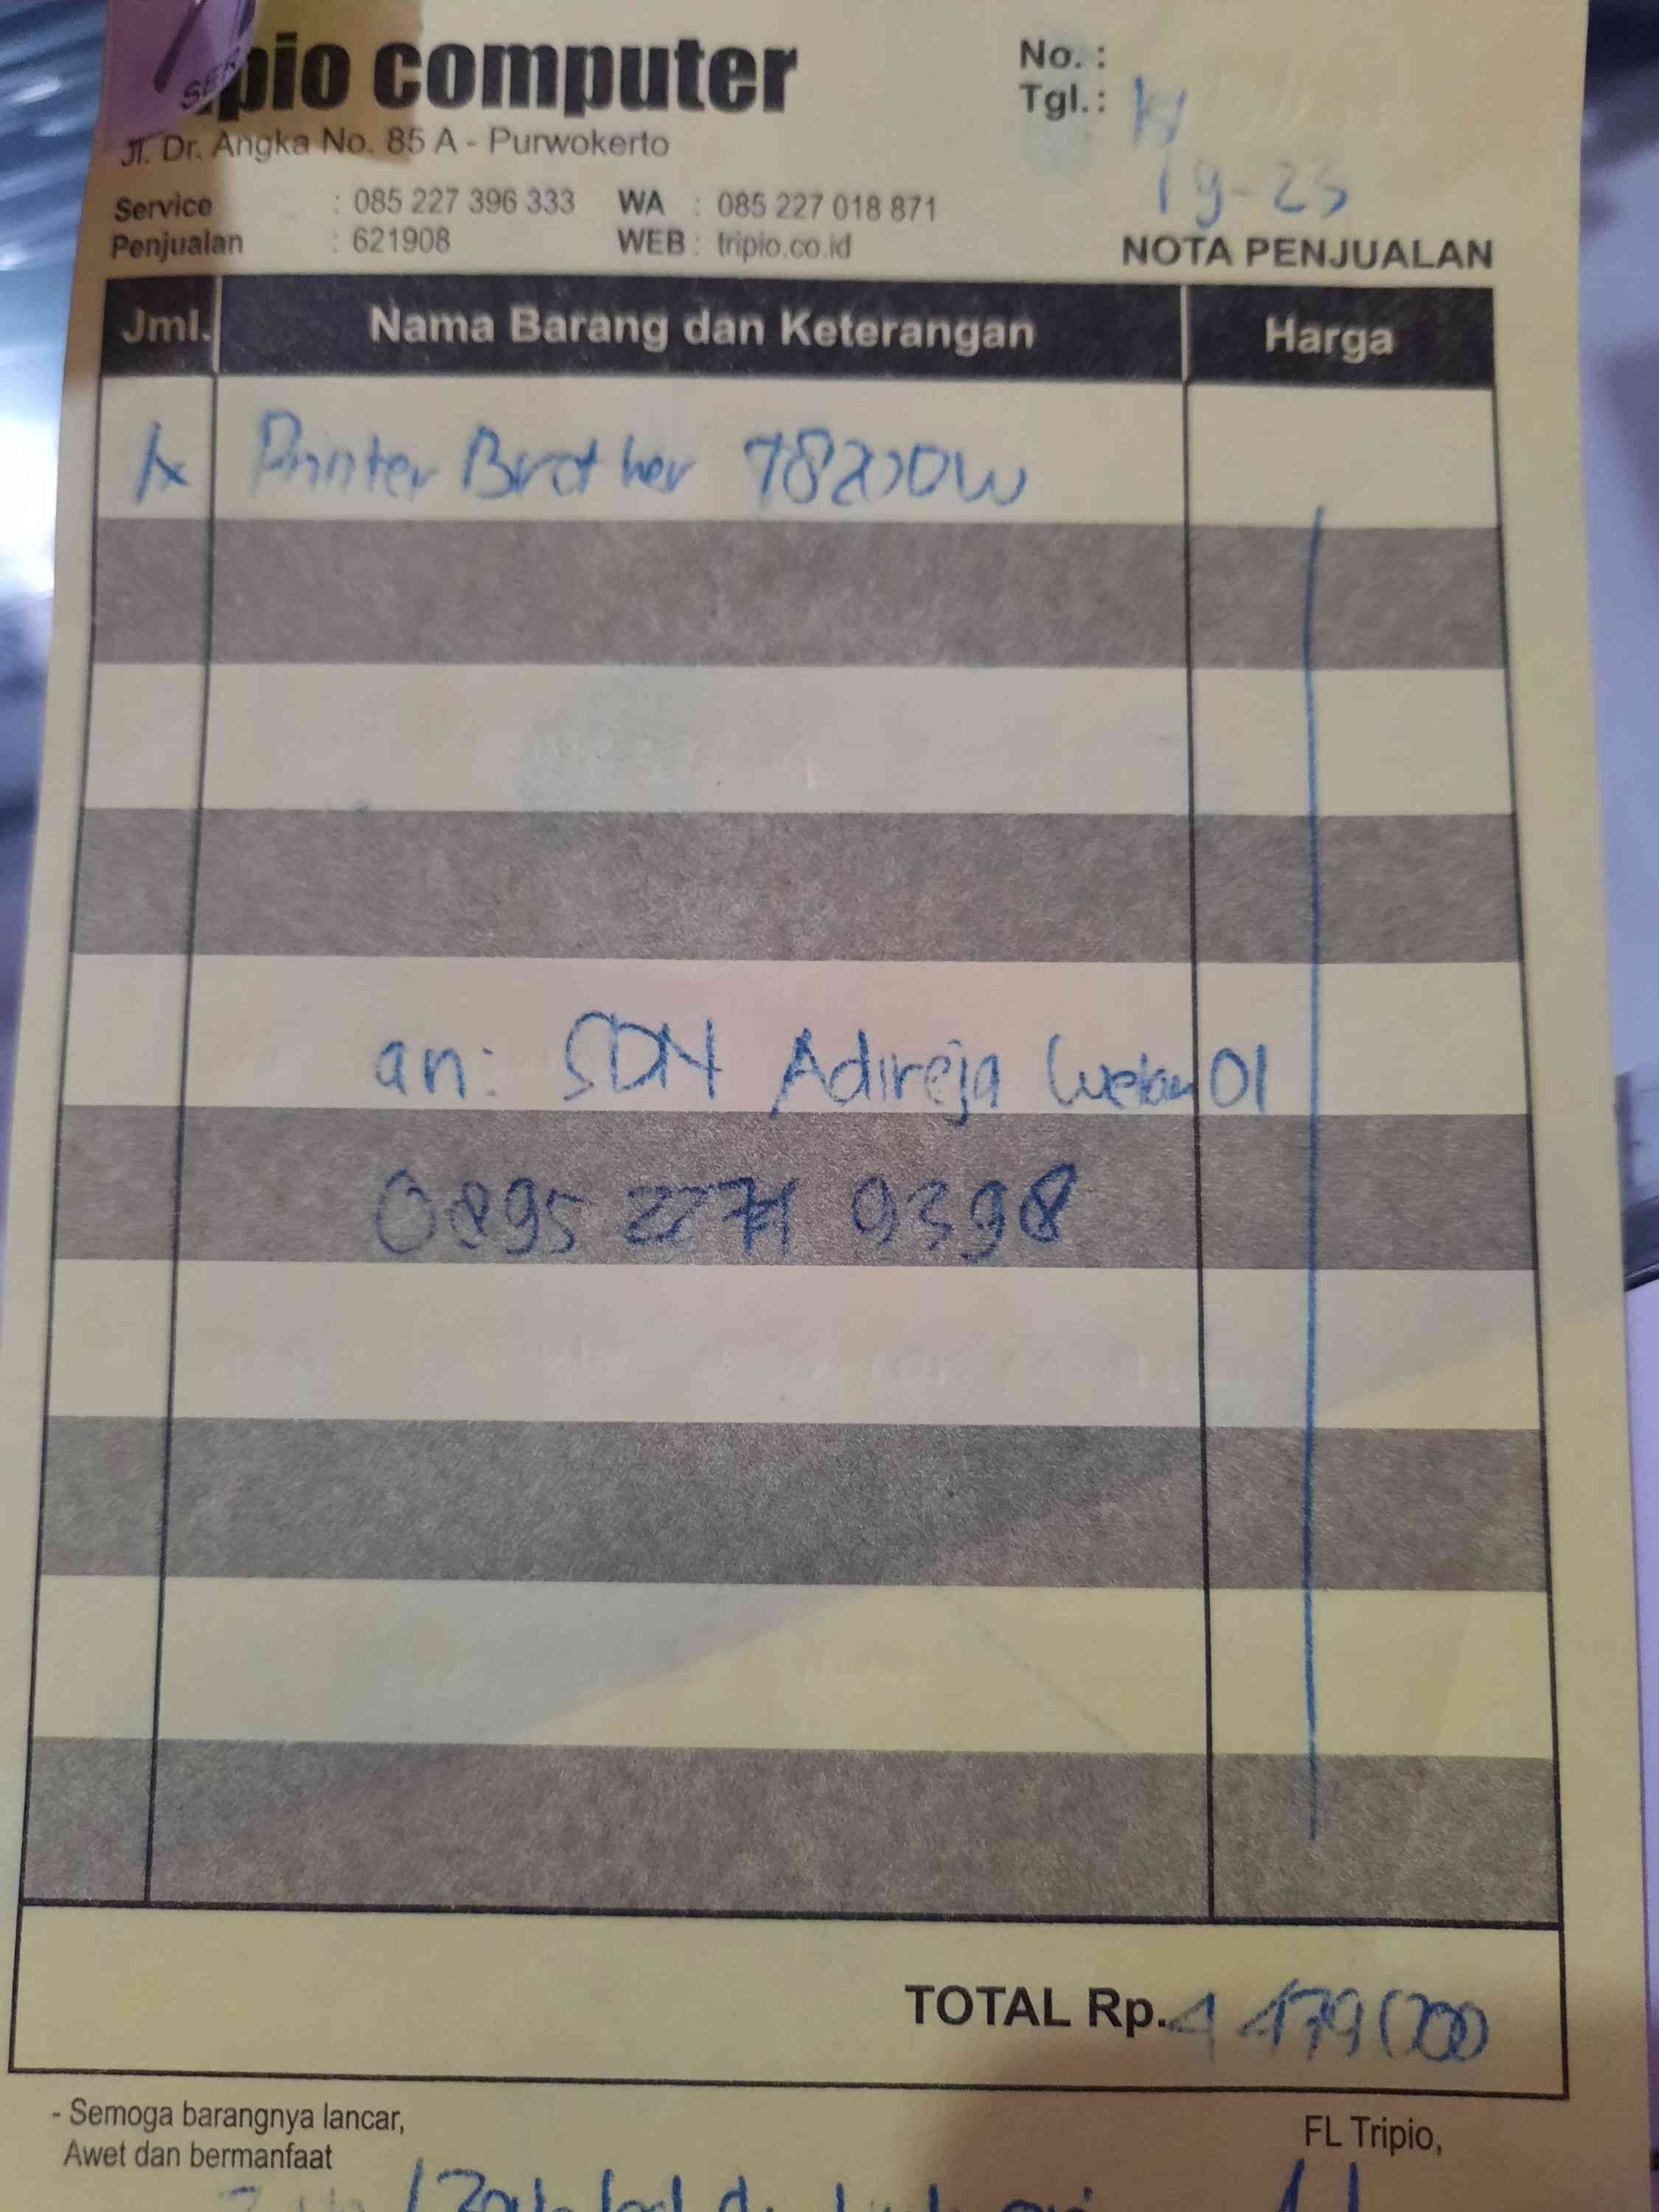 pio computer
Jl. Dr. Angka No. 85 A - Purwokerto
No. :
Tgl. :
9-23
Service : 085 227 396 333 WA : 085 227 018 871
Penjualan : 621908 WEB : tripio.co.id
NOTA PENJUALAN
Jml. Nama Barang dan Keterangan Harga
1x Printer Brother 7820DW
an: SDN Adireja Wetan 01
0895 2271 9398
TOTAL Rp. 4 479 000
- Semoga barangnya lancar,
Awet dan bermanfaat
FL Tripio,